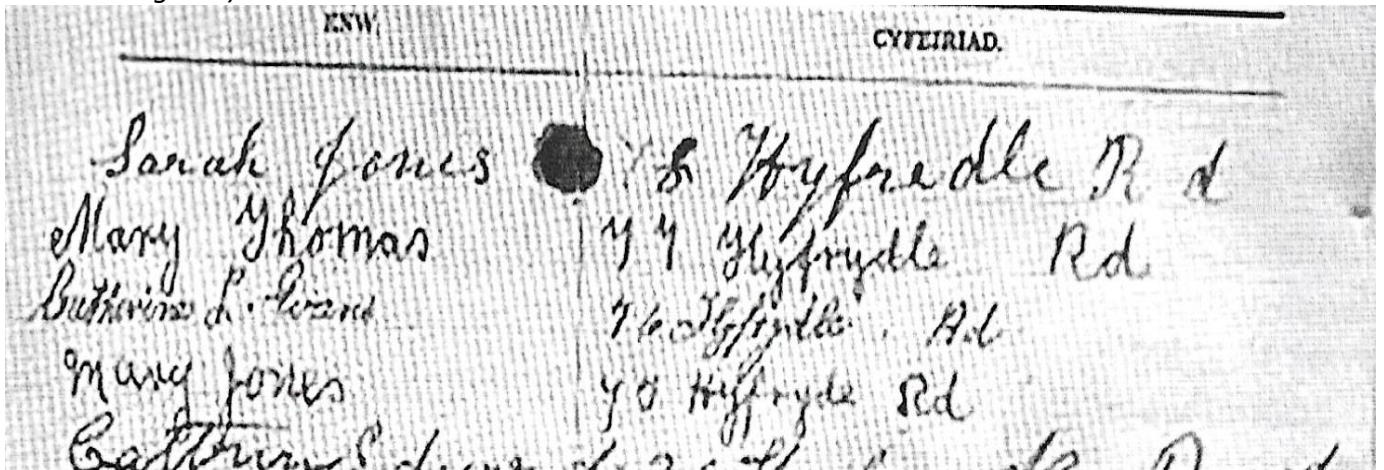 ENW. CYFEIRIAD.
Sarah Jones 78 Hyfredle Rd
Mary Thomas 77 Hyfrydle Rd
Catherine L. Evans 76 Hyfrydle. Rd
Mary Jones Hyfryde Rd